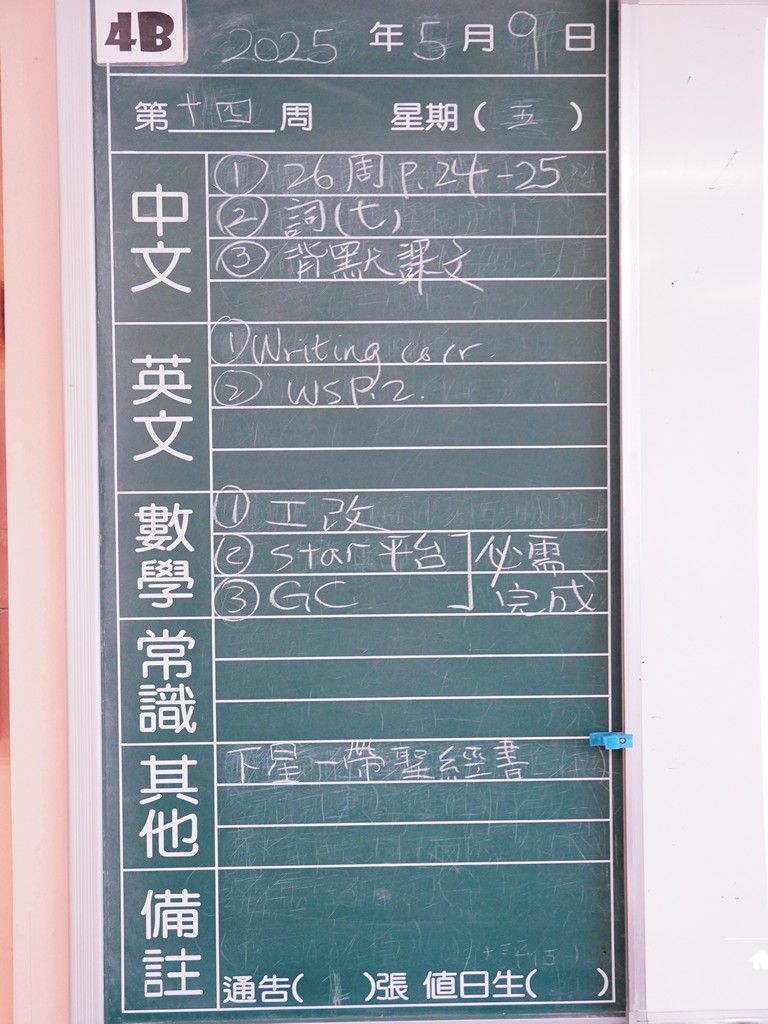 4B
2025 年 5 月 9 日
第 十四 周 星期 ( 五 )
中文
① 26周 P.24-25
② 詞(七)
③ 背默課文
英文
① Writing corr.
② WS P.2.
數學
① 工改
② Star平台 ] 必需
③ GC 完成
常識
其他
下星一帶聖經書
備註
通告( )張 值日生( )